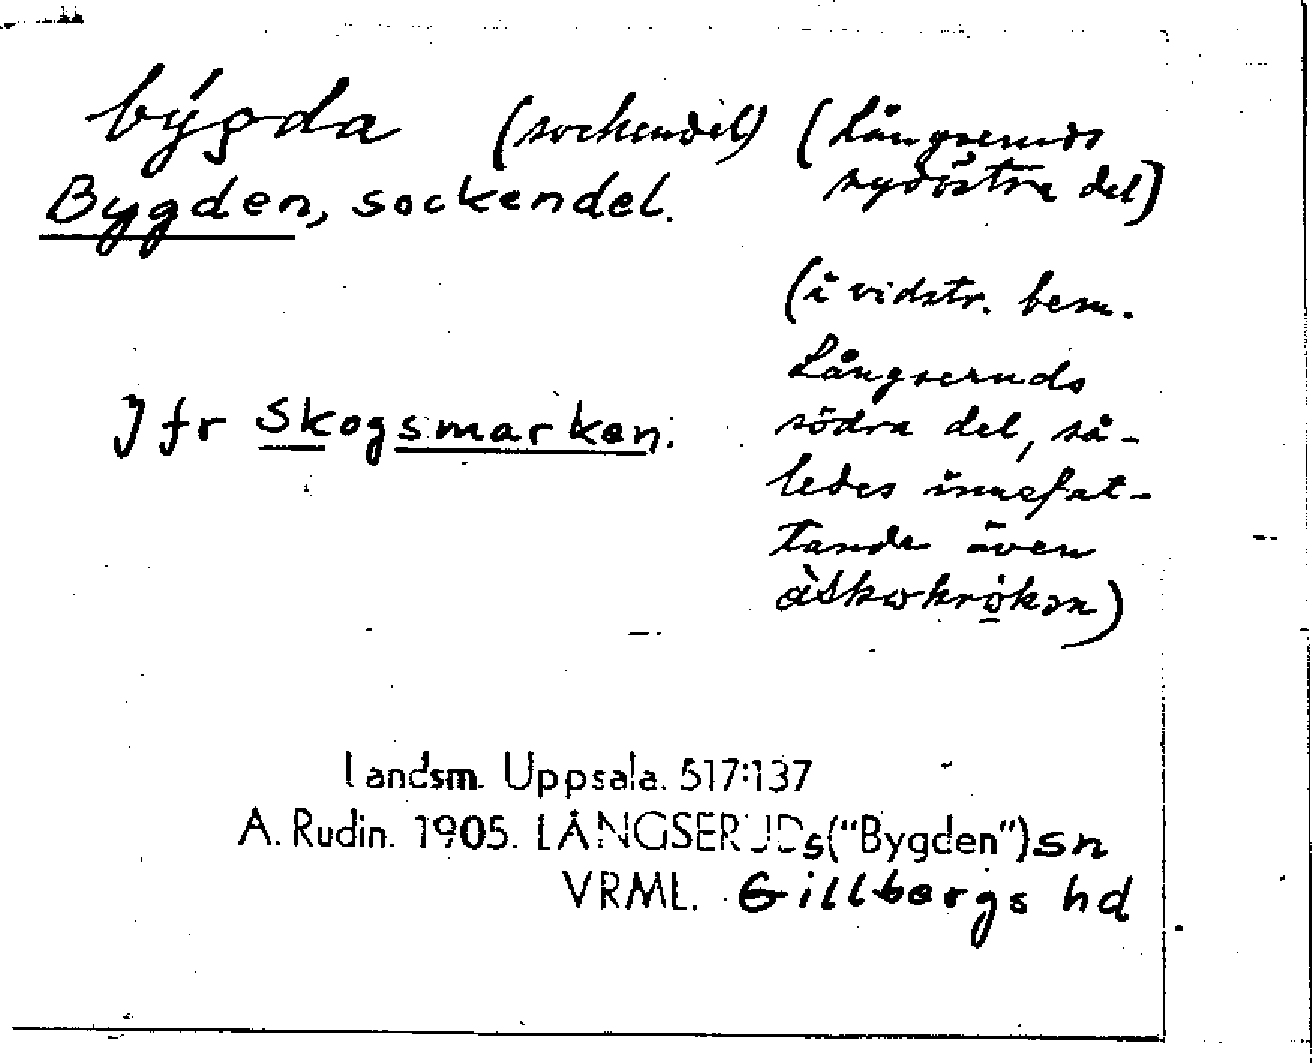 býgda (sockendel) (Långseruds
sydöstra del)
Bygden, sockendel.
(i vidstr. bem.
Långseruds
södra del, så-
ledes innefat-
tande även
Jfr Skogsmarken.
Landsm. Uppsala. 517:137
A. Rudin. 1905. LÅNGSERUDs ("Bygden") sn
VRML. Gillbergs hd